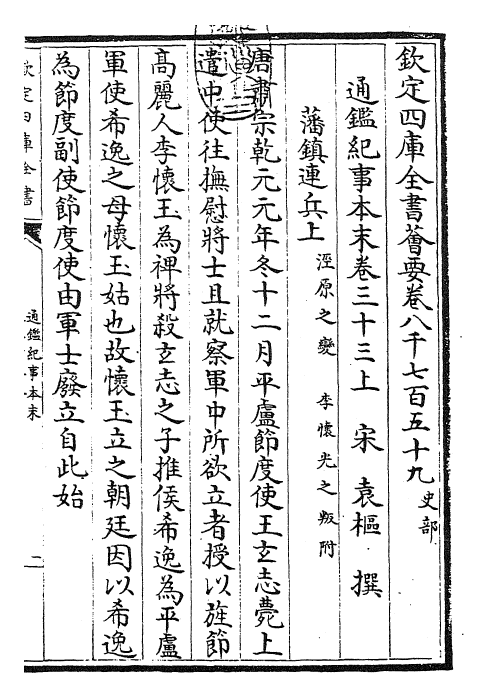 欽定四庫全書薈要卷八千七百五十九 史部
通鑑紀事本末卷三十三上 宋 袁樞 撰
藩鎮連兵上 涇原之變 李懷光之叛附
唐肅宗乾元元年冬十二月平盧節度使王玄志薨上
遣中使往撫慰將士且就察軍中所欲立者授以旌節
高麗人李懷玉為裨將殺玄志之子推侯希逸為平盧
軍使希逸之母懷玉姑也故懷玉立之朝廷因以希逸
為節度副使節度使由軍士廢立自此始
欽定四庫全書
通鑑紀事本末